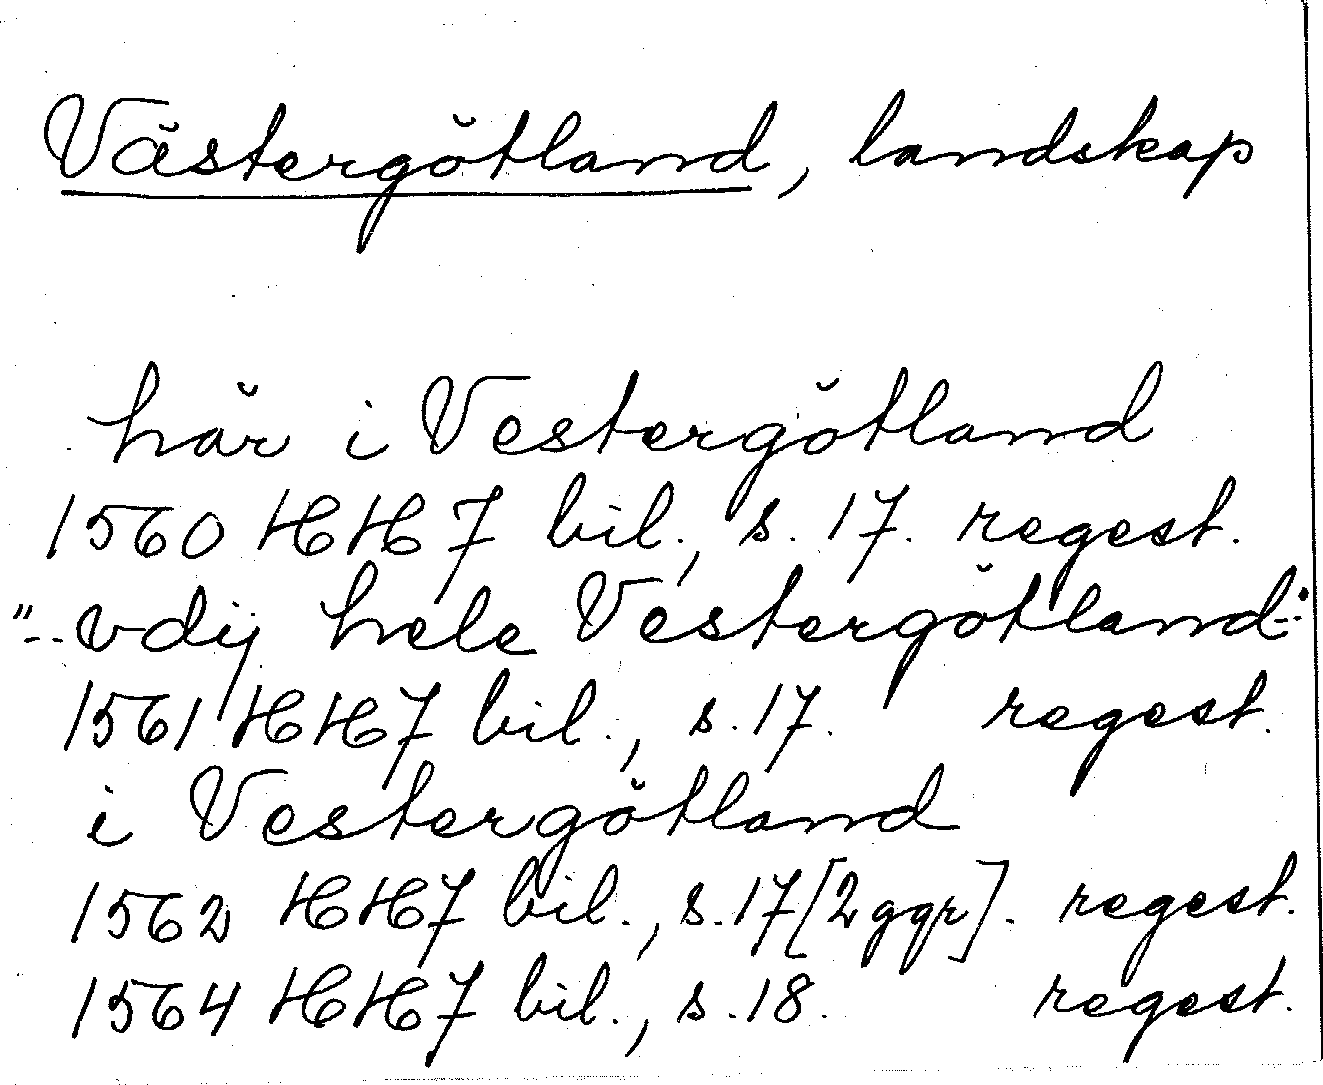 Västergötland, landskap
här i Vestergötland
1560 HH 7 bil., s. 17. regest.
"-- vdij hele Vestergötland--"
1561 HH7 bil., s. 17. regest.
i Vestergötland
1562 HH7 bil., s. 17 [2 ggr]. regest.
1564 HH7 bil., s. 18. regest.